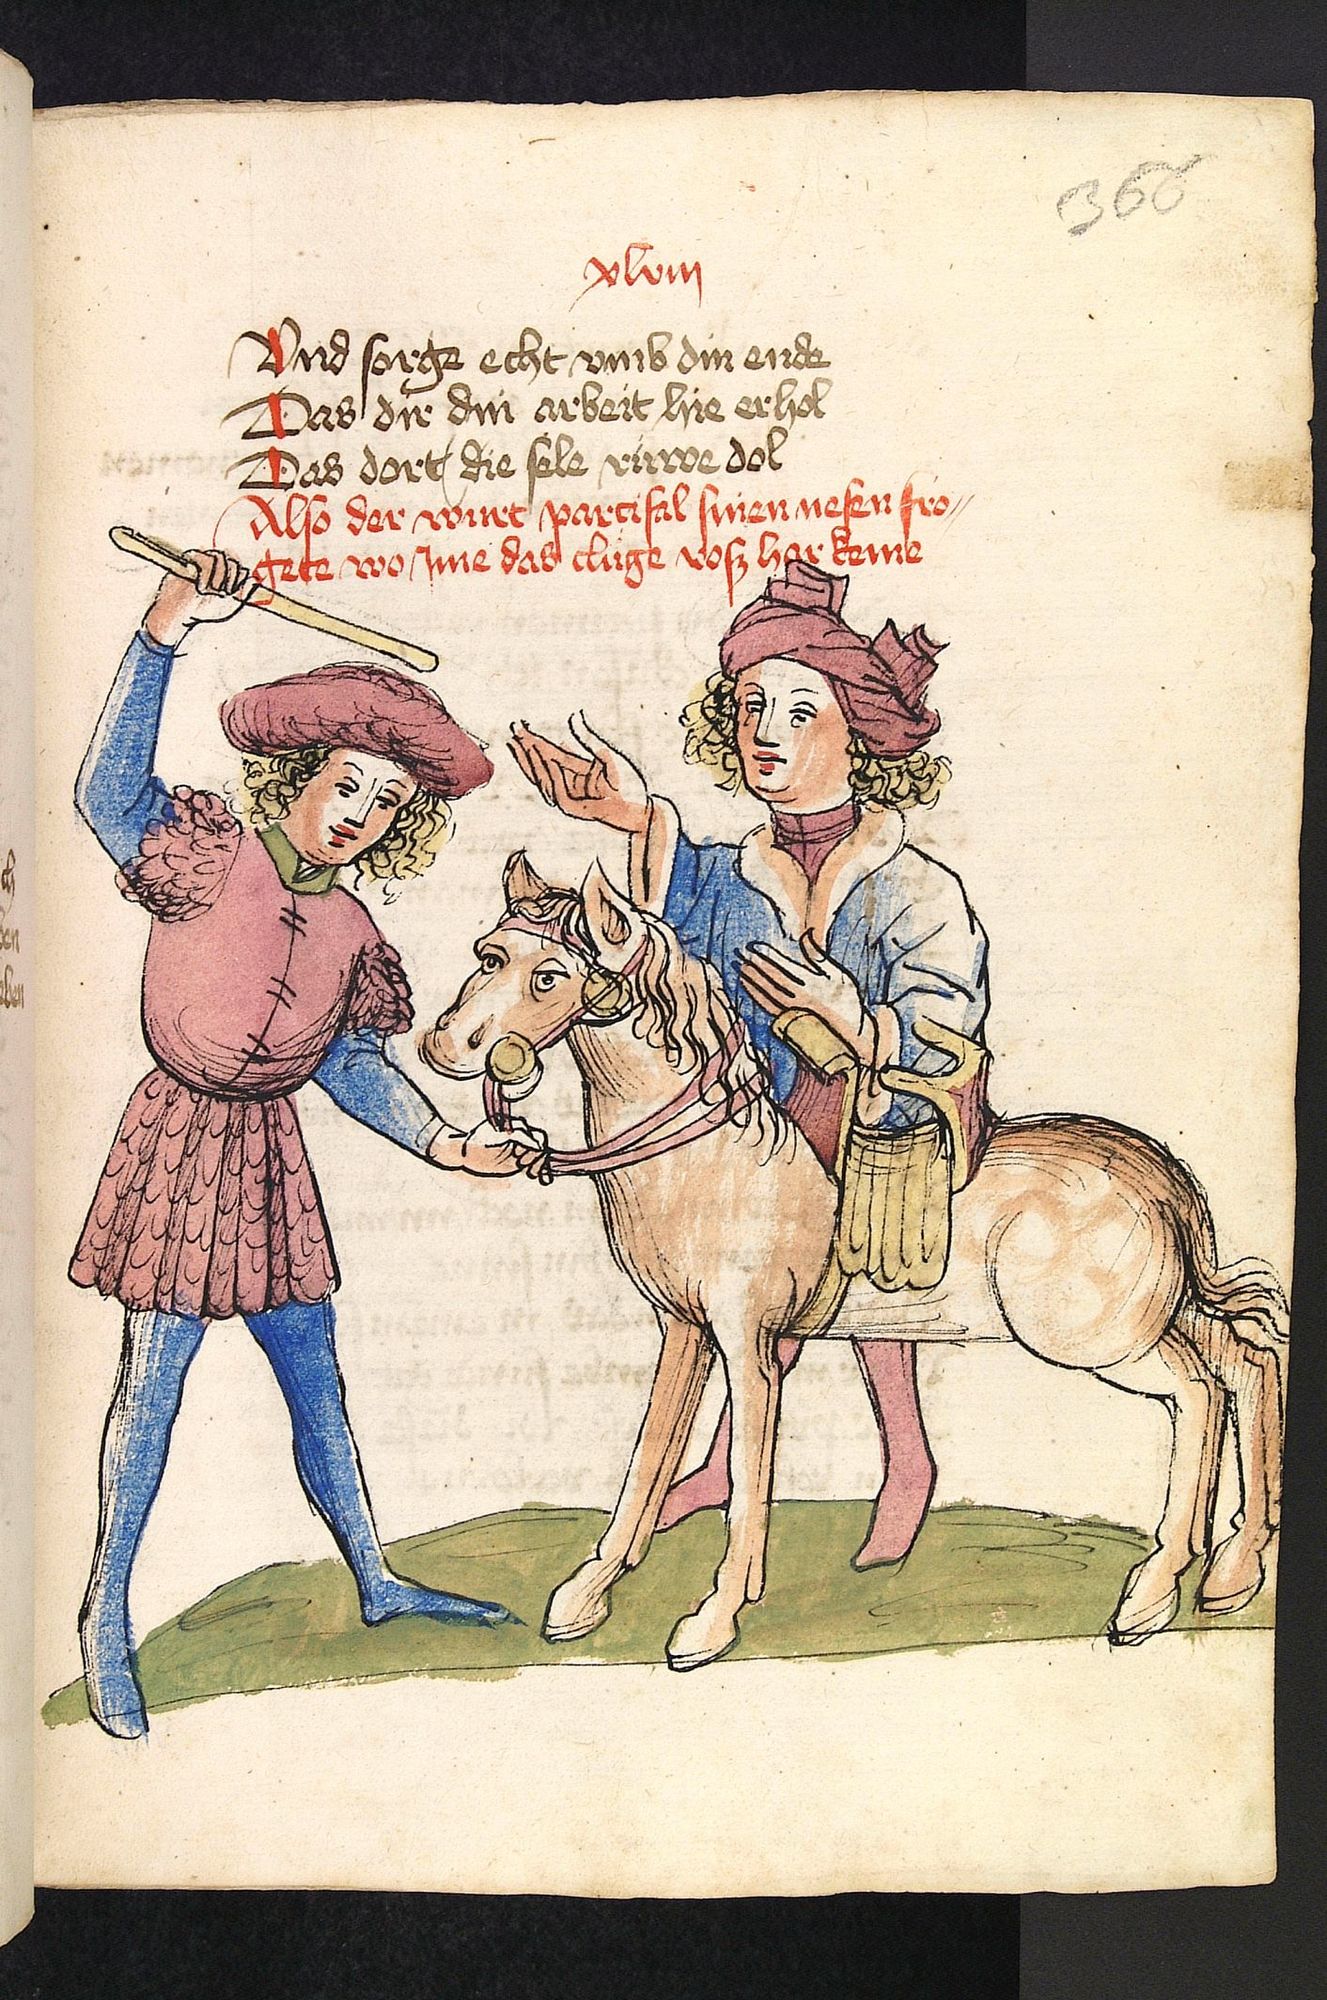 366
xlviii
Vnd sorge echt vmb din ende
Das dir din arbeit hie erhol
Das dort die sele ruwe dol
Also der wurt parcifal sinen nefen fro//
gete wo ime das cluge rosz har keme
ch
den
aben